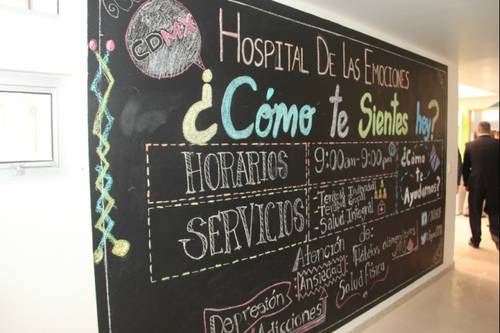 CDMX
HOSPITAL DE LAS EMOCIONES
¿Cómo te Sientes hoy?
HORARIOS
9:00am-9:00pm
¿Cómo te Ayudamos?
SERVICIOS
-Terapia Individual
-Terapia
-Salud Integral
Atención de:
Ansiedad
Salud Física
Depresión
Adicciones